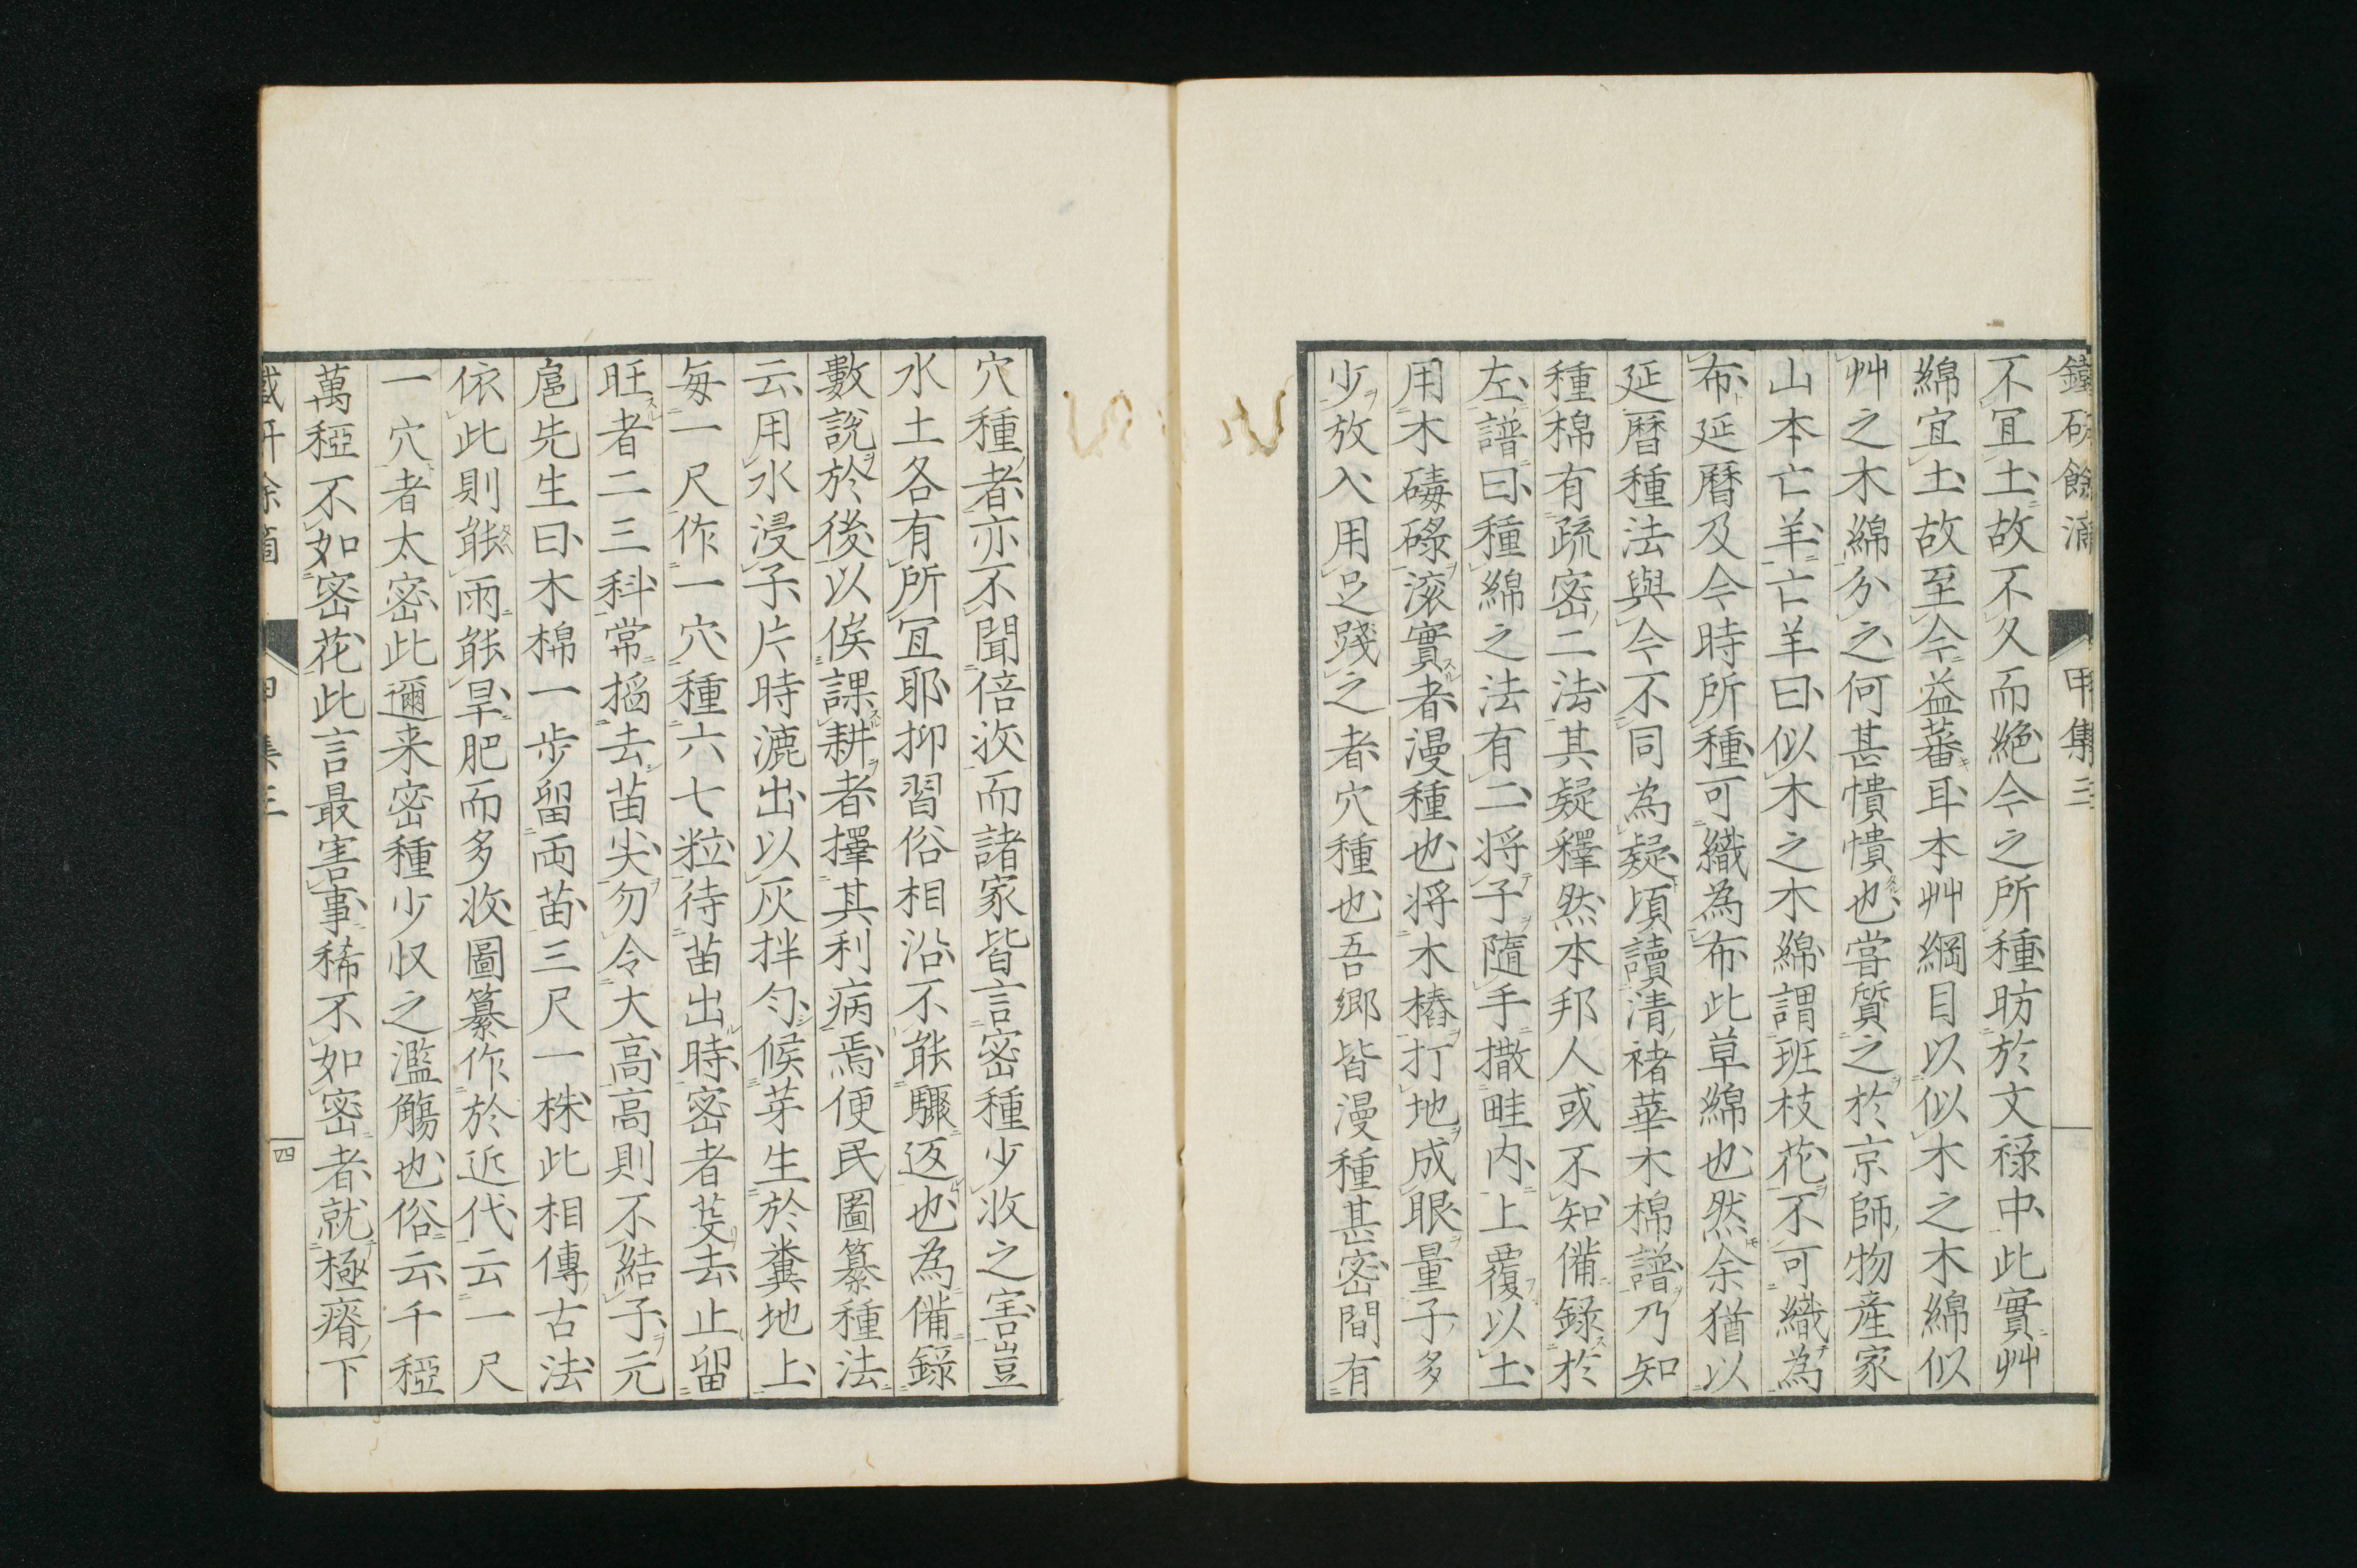 鐵研餘滴 甲集三
不宜土故不久而絶今之所種昉於文祿中此實艸
綿宜土故至今益蕃耳本艸綱目以似木之木綿似
艸之木綿分之何甚憒憒也嘗質之於京師物産家
山本亡羊亡羊曰似木之木綿謂班枝花不可織為
布延曆及今時所種可織為布此草綿也然余猶以
延曆種法與今不同為疑頃讀清褚華木棉譜乃知
種棉有疏密二法其疑釋然本邦人或不知備錄於
左譜曰種綿之法有二將子隨手撒畦内上覆以土
用木磟碌滾實者漫種也將木樁打地成眼量子多
少放入用足踐之者穴種也吾郷皆漫種甚密間有
穴種者亦不聞倍收而諸家皆言密種少收之害豈
水土各有所宜耶抑習俗相沿不能驟返也為備錄
數說於後以俟課耕者擇其利病焉便民圖纂種法
云用水浸子片時漉出以灰拌匀候芽生於糞地上
每一尺作一穴種六七粒待苗出時密者芟去止留
旺者二三科常掐去苗尖勿令大高高則不結子元
扈先生曰木棉一步留兩苗三尺一株此相傳古法
依此則能雨能旱肥而多收圖纂作於近代云一尺
一穴者太密此邇来密種少収之濫觴也俗云千稏
萬稏不如密花此言最害事稀不如密者就極瘠下
甲集三 四